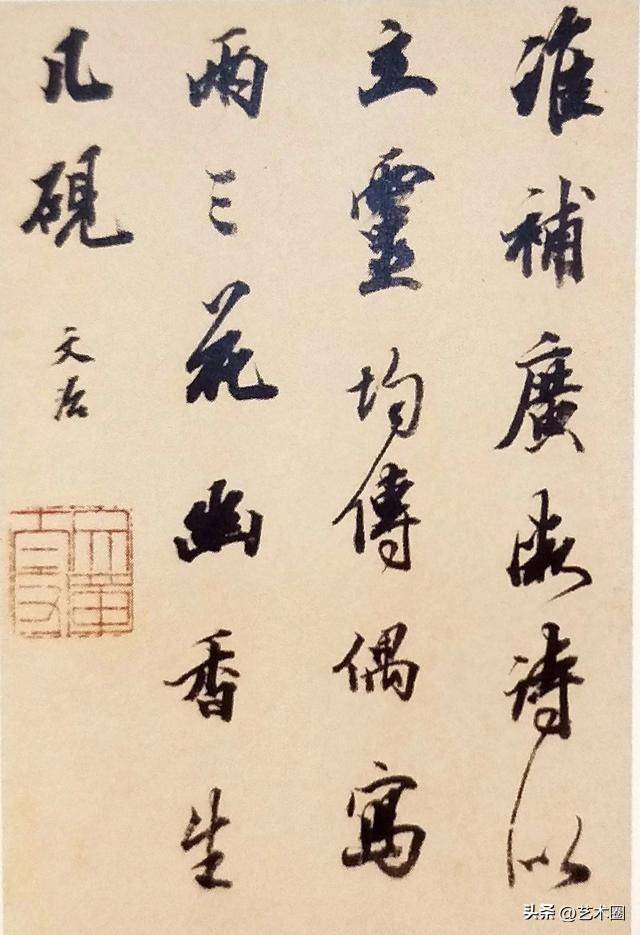 誰補廣微詩以
立靈均傳偶寫
兩三花幽香生
几硯
文治
头条 @艺术圈